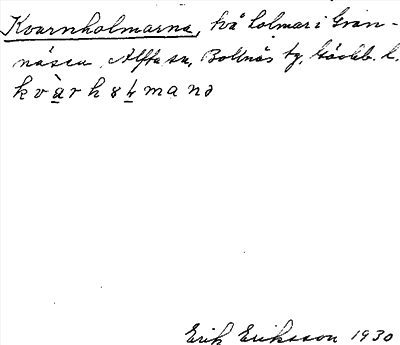 Kvarnholmarna, två holmar i Grän-
näsea, Alfta sn, Bollnäs tg, Gävleb. l.
kvàrholmanə
Erik Eriksson 1930